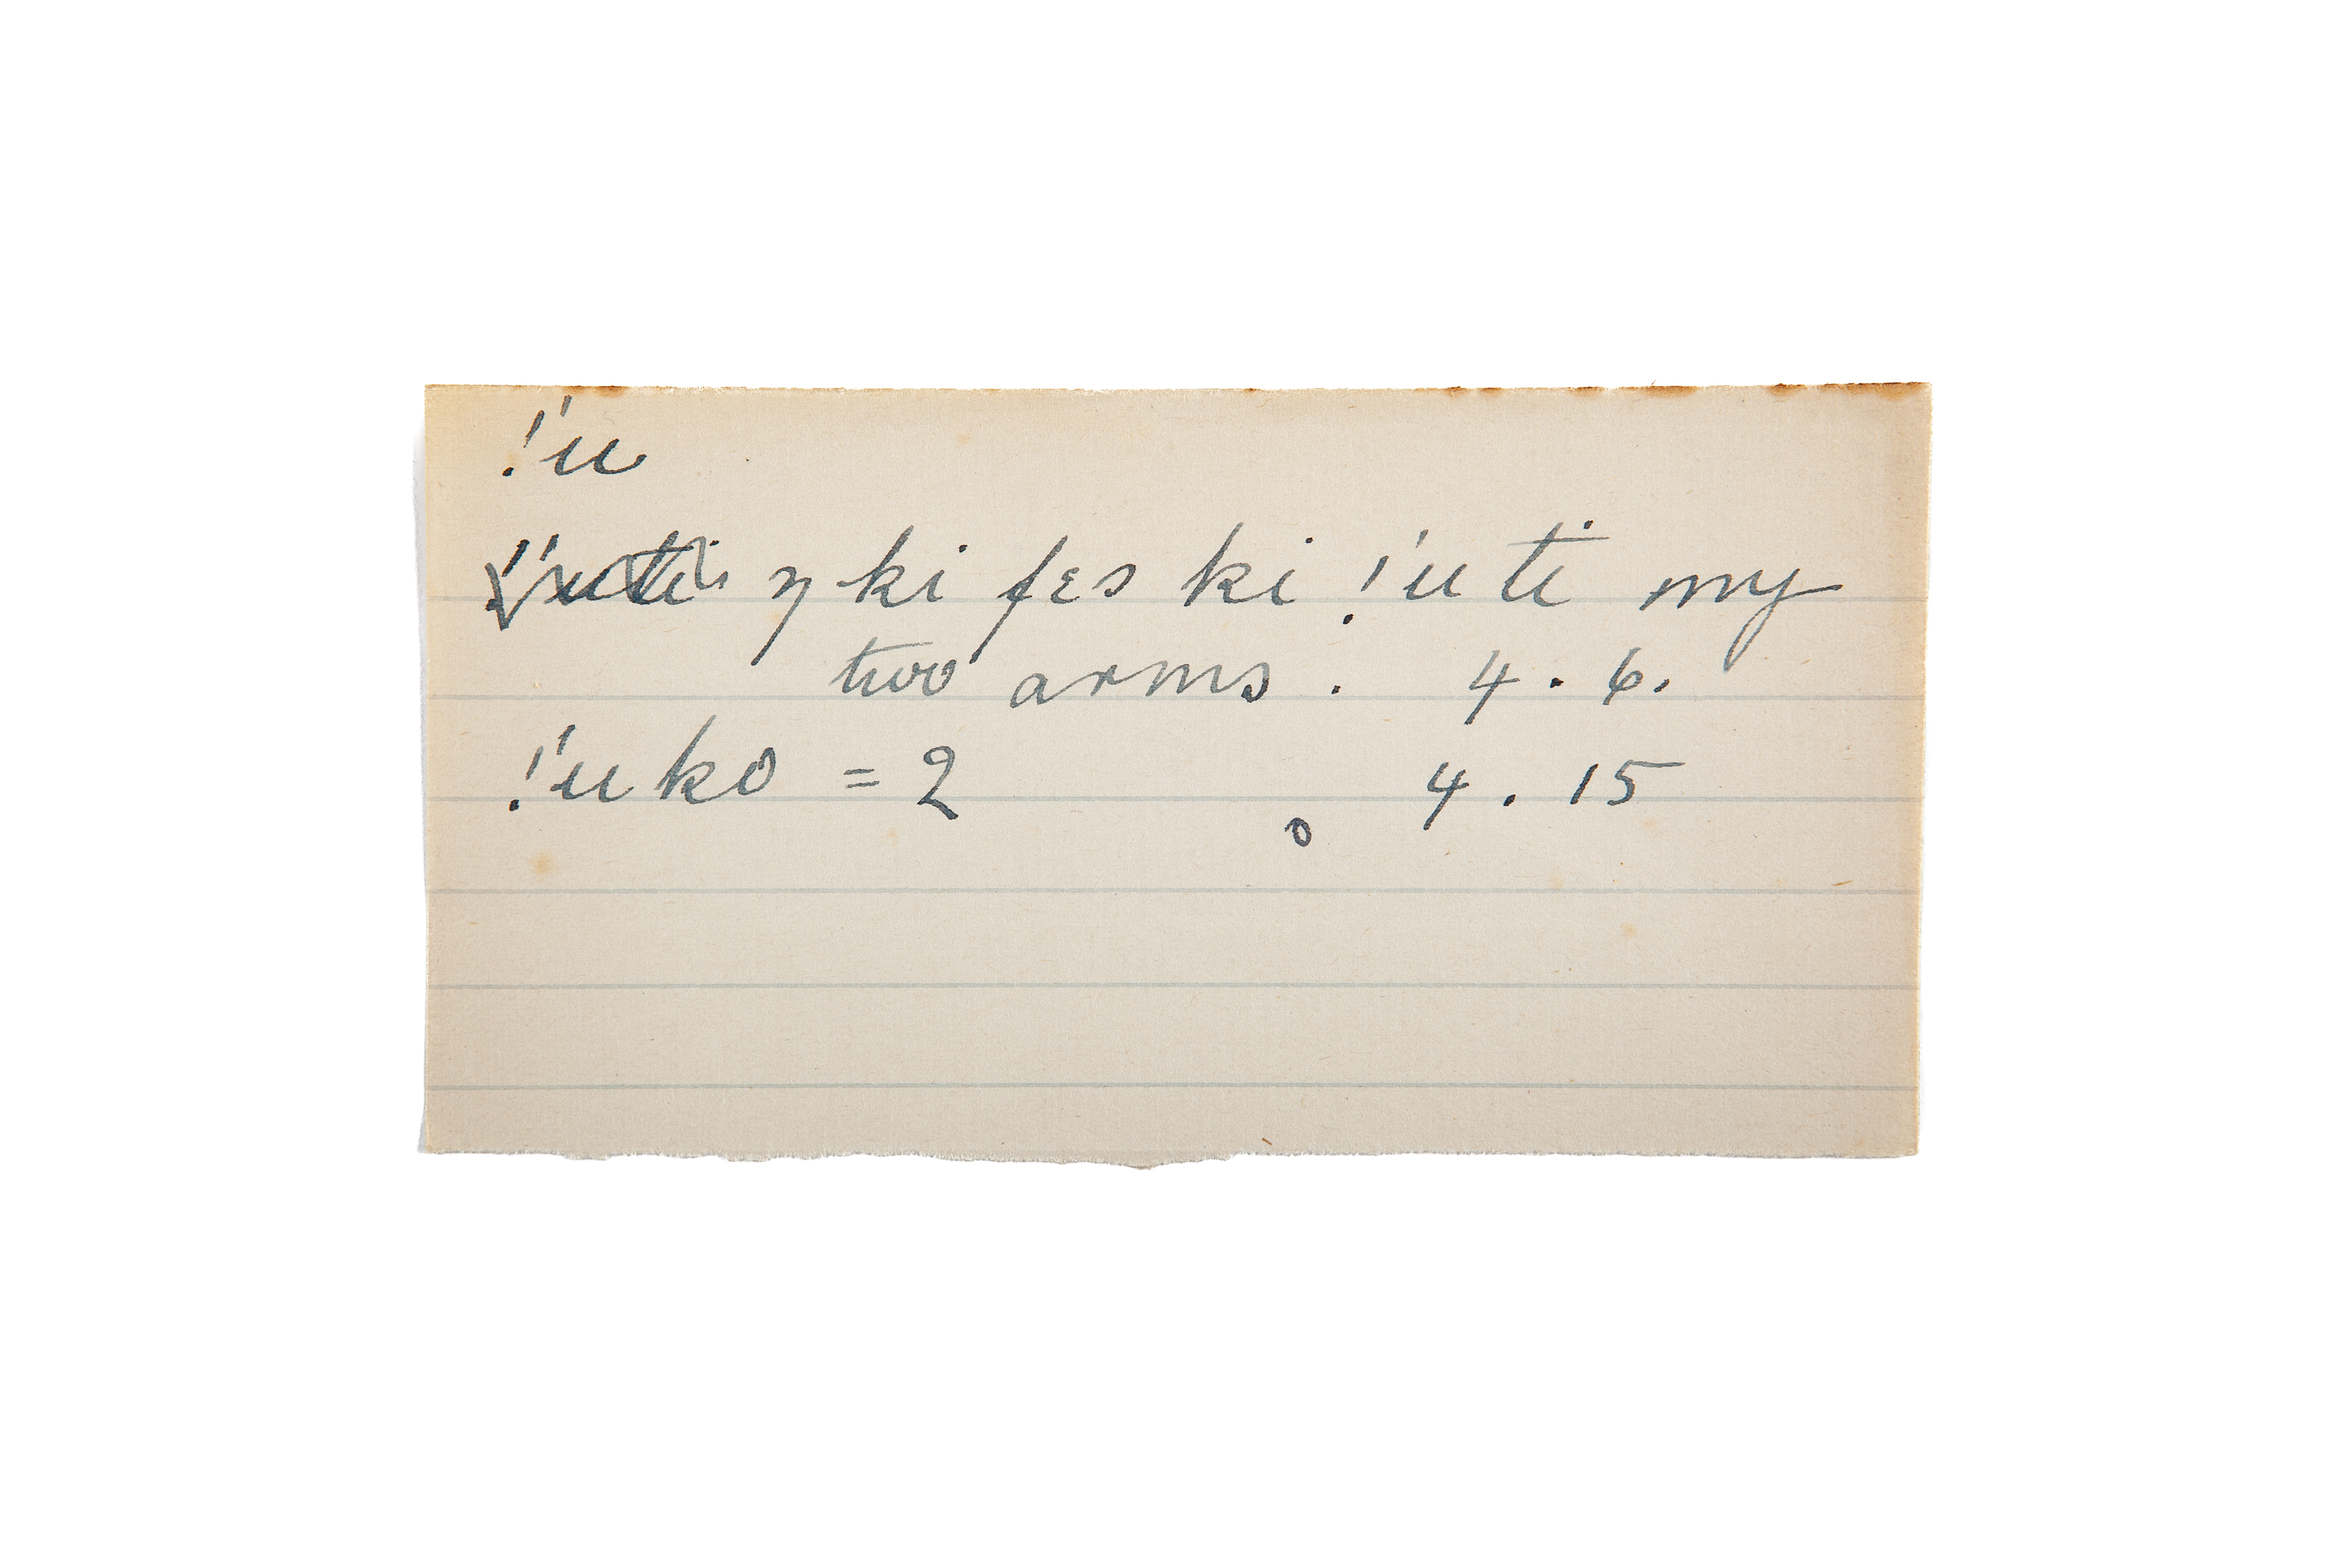 !'u
ŋ ki fɛs ki !'u ti my
two arms. 4. 6.
!'u ko = 2 4. 15